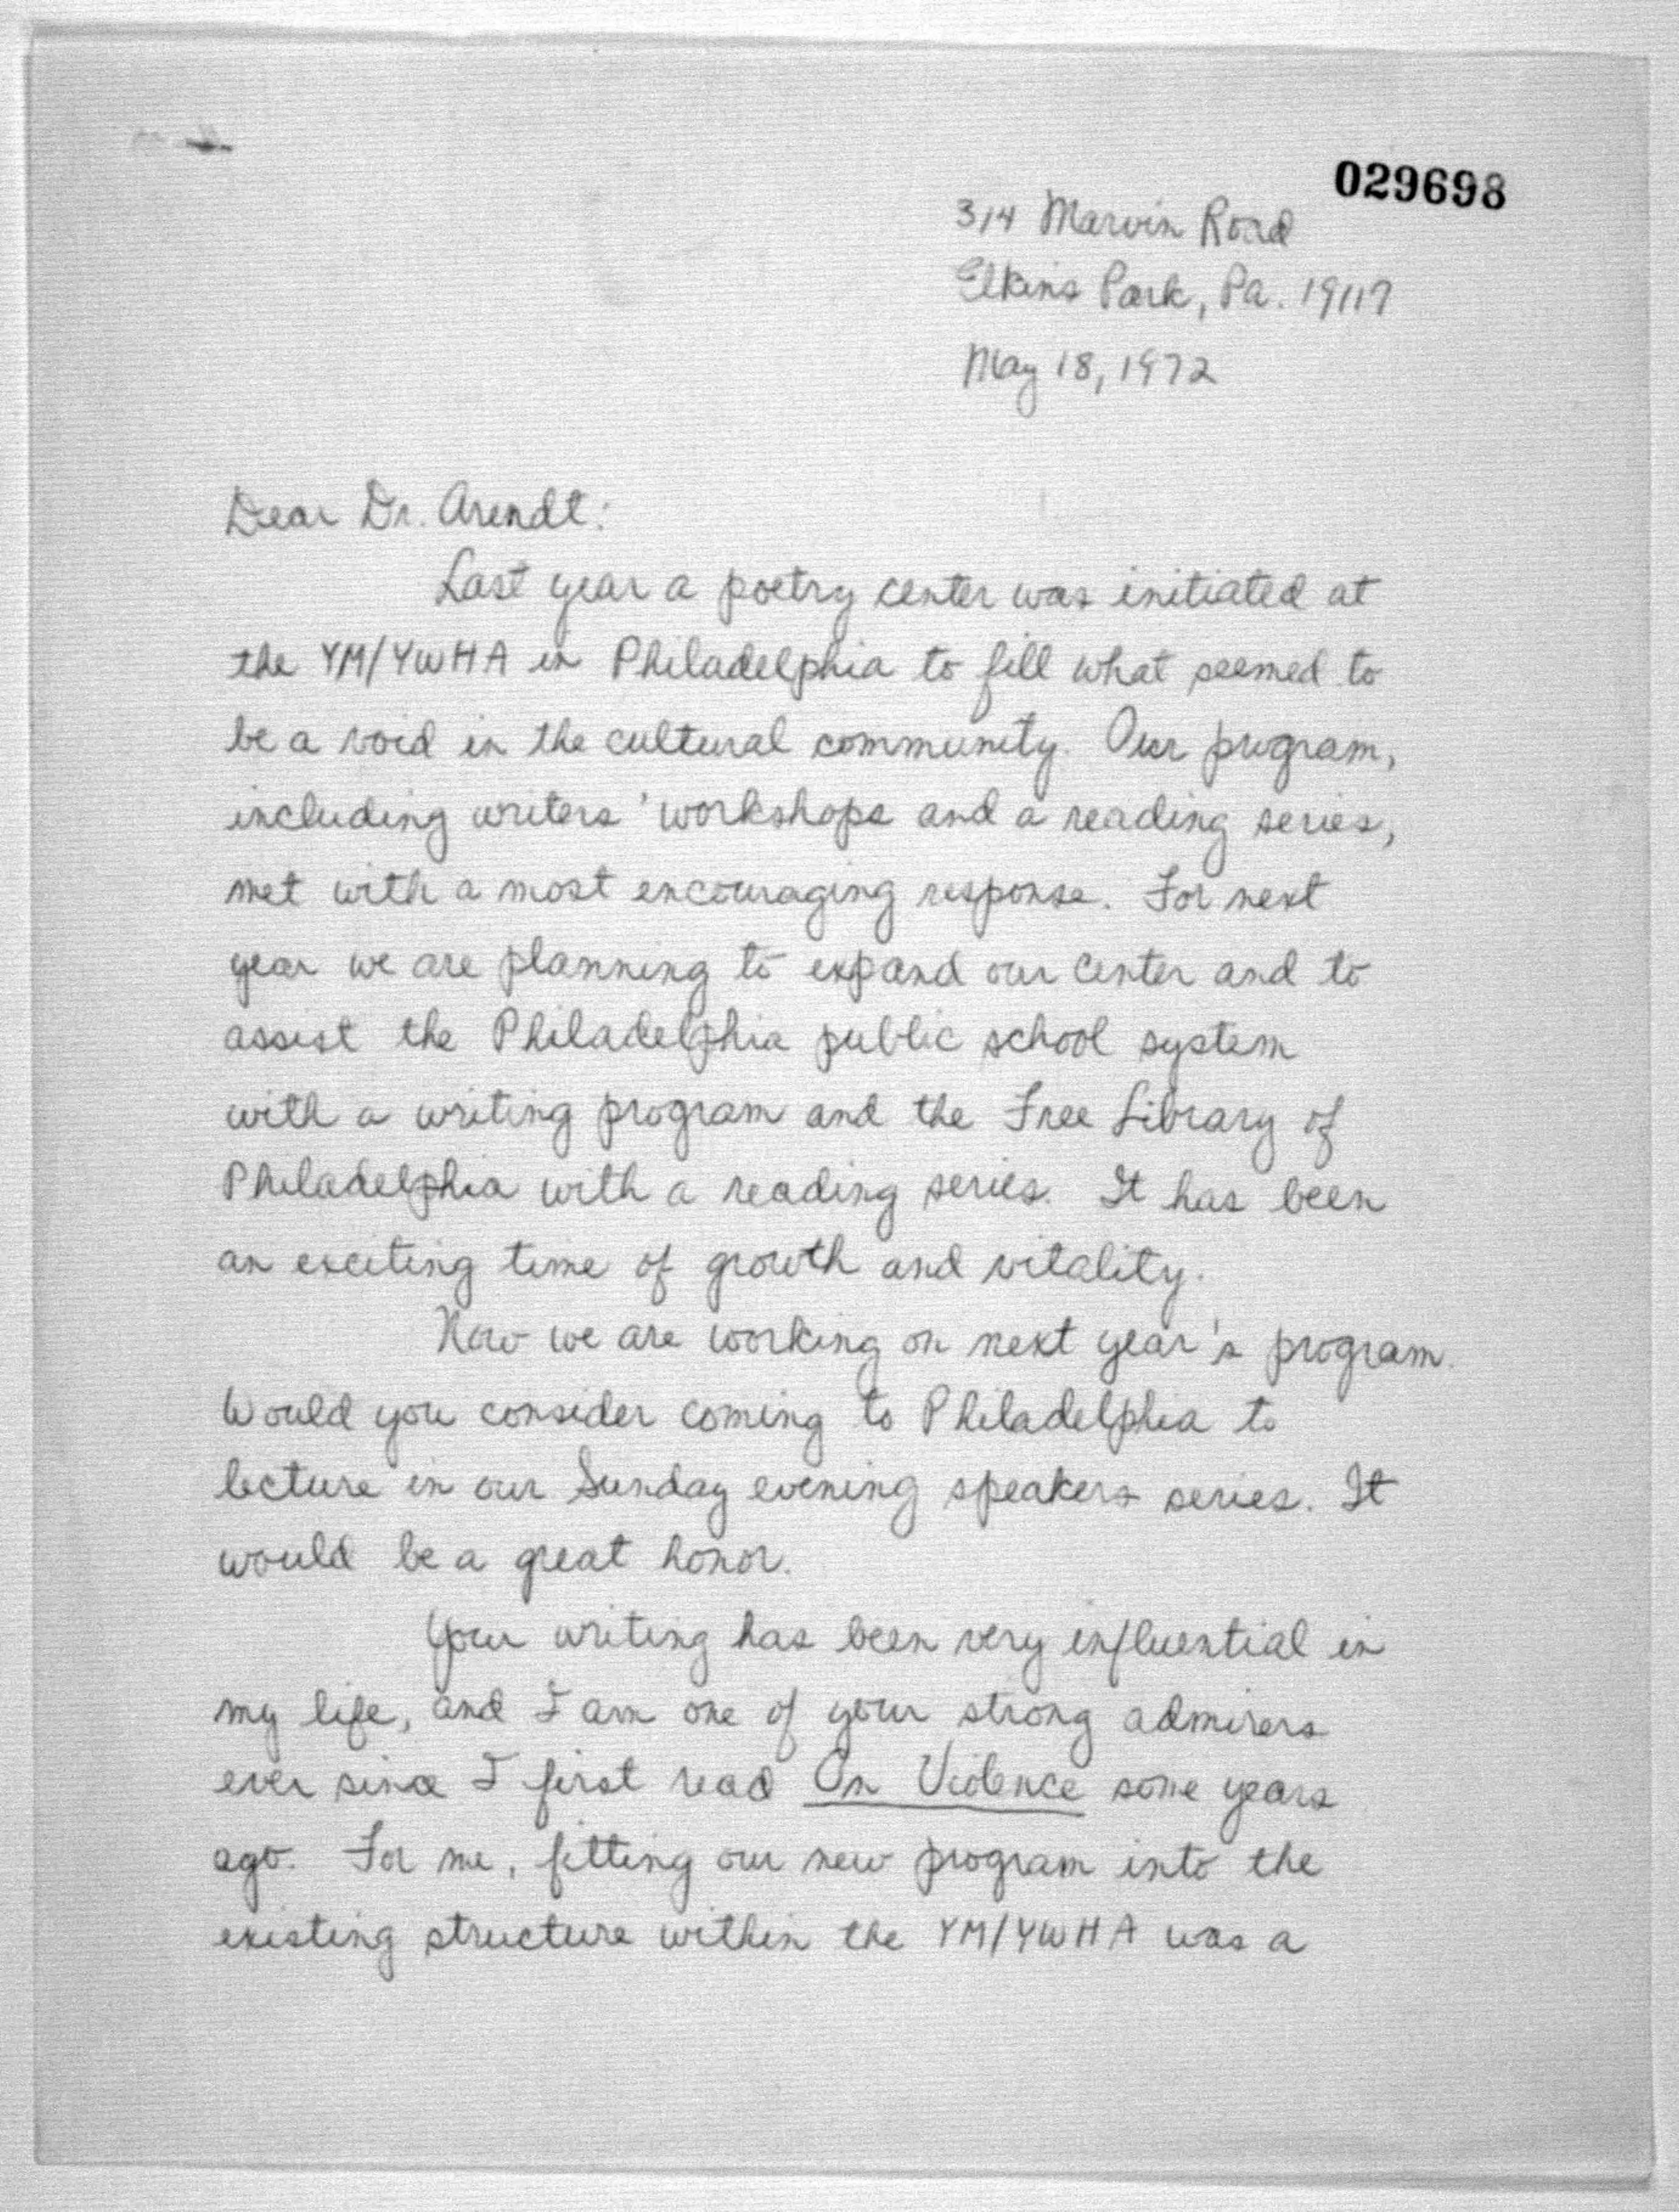 029698
314 Marvin Road
Elkins Park, Pa. 19117
May 18, 1972
Dear Dr. Arendt:
Last year a poetry center was initiated at
the YM/YWHA in Philadelphia to fill what seemed to
be a void in the cultural community. Our program,
including writers' workshops and a reading series,
met with a most encouraging response. For next
year we are planning to expand our center and to
assist the Philadelphia public school system
with a writing program and the Free Library of
Philadelphia with a reading series. It has been
an exciting time of growth and vitality.
Now we are working on next year's program.
Would you consider coming to Philadelphia to
lecture in our Sunday evening speakers series. It
would be a great honor.
Your writing has been very influential in
my life, and I am one of your strong admirers
ever since I first read On Violence some years
ago. For me, fitting our new program into the
existing structure within the YM/YWHA was a